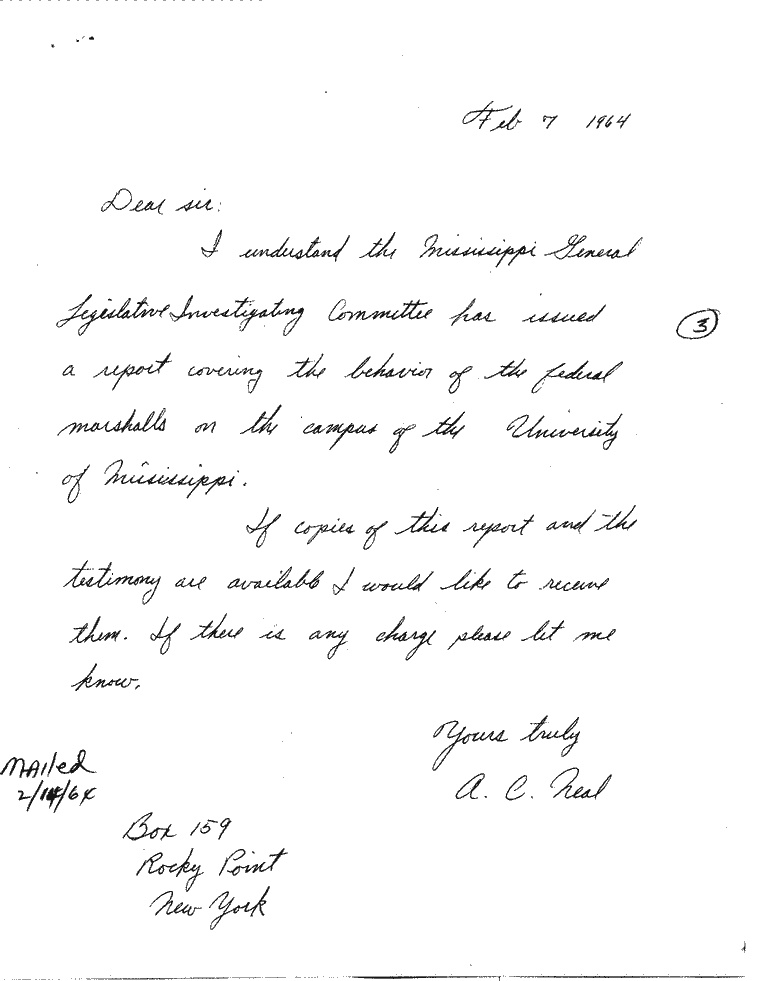 Feb 7 1964
Dear sir:
I understand the Mississippi General
Legislative Investigating Committee has issued
3
a report covering the behavior of the federal
marshalls on the campus of the University
of Mississippi.
If copies of this report and the
testimony are available I would like to receive
them. If there is any charge please let me
know.
Yours truly
A. C. Neal
Mailed
2/14/64
Box 159
Rocky Point
New York